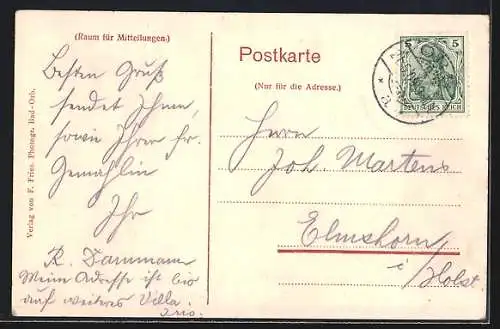 (Raum für Mitteilungen.)
Besten Gruß
sendet Ihnen,
sowie Ihrer fr.
Gemahlin
Ihr
R. Dammann
Meine Adresse ist bis
auf weiteres Villa
Iris.
Verlag von F. Fries, Photogr. Bad-Orb.
Postkarte
(Nur für die Adresse.)
Herrn
Joh. Martens
Elmshorn
i/Holst
5 5
DEUTSCHES REICH